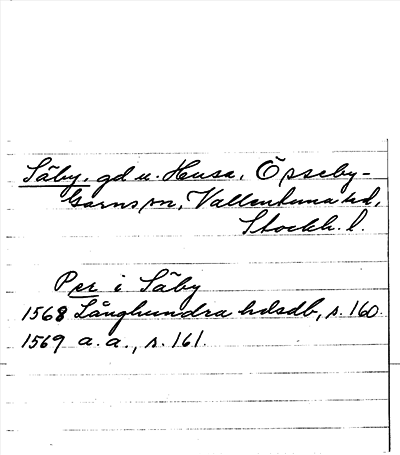 Säby, gd u. Husa, Össeby-
Garns sn, Vallentuna hd,
Stockh. l.
Per i Säby
1568 Långhundra hdsdb, s. 160.
1569 a. a., s. 161.